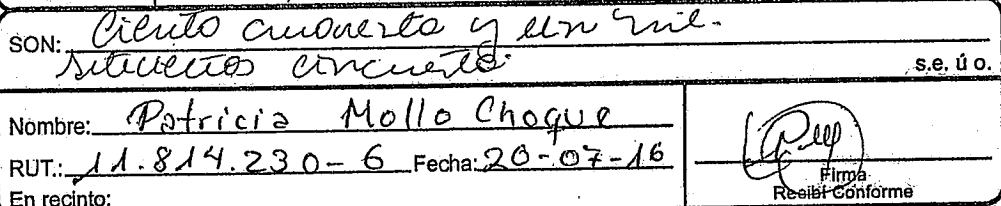 SON: Ciento cuarenta y un mil
setecientos cincuenta
s.e. ú o.
Nombre: Patricia Mollo Choque
RUT.: 11.814.230-6 Fecha: 20-07-16
En recinto:
Firma
Recibí Conforme